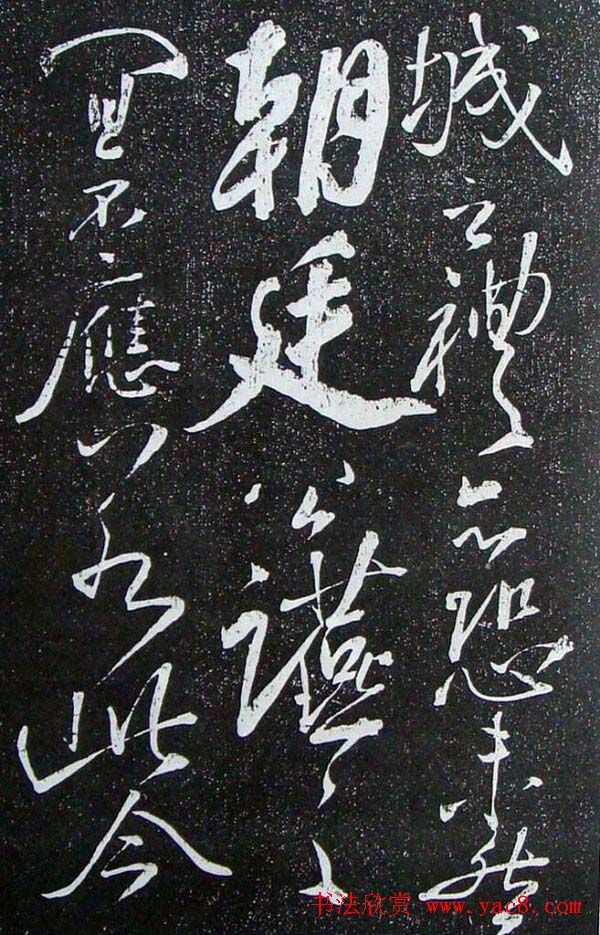 城之禮亦恐未然
朝廷公讌之
宜不應若此今
书法欣赏 www.yac8.com